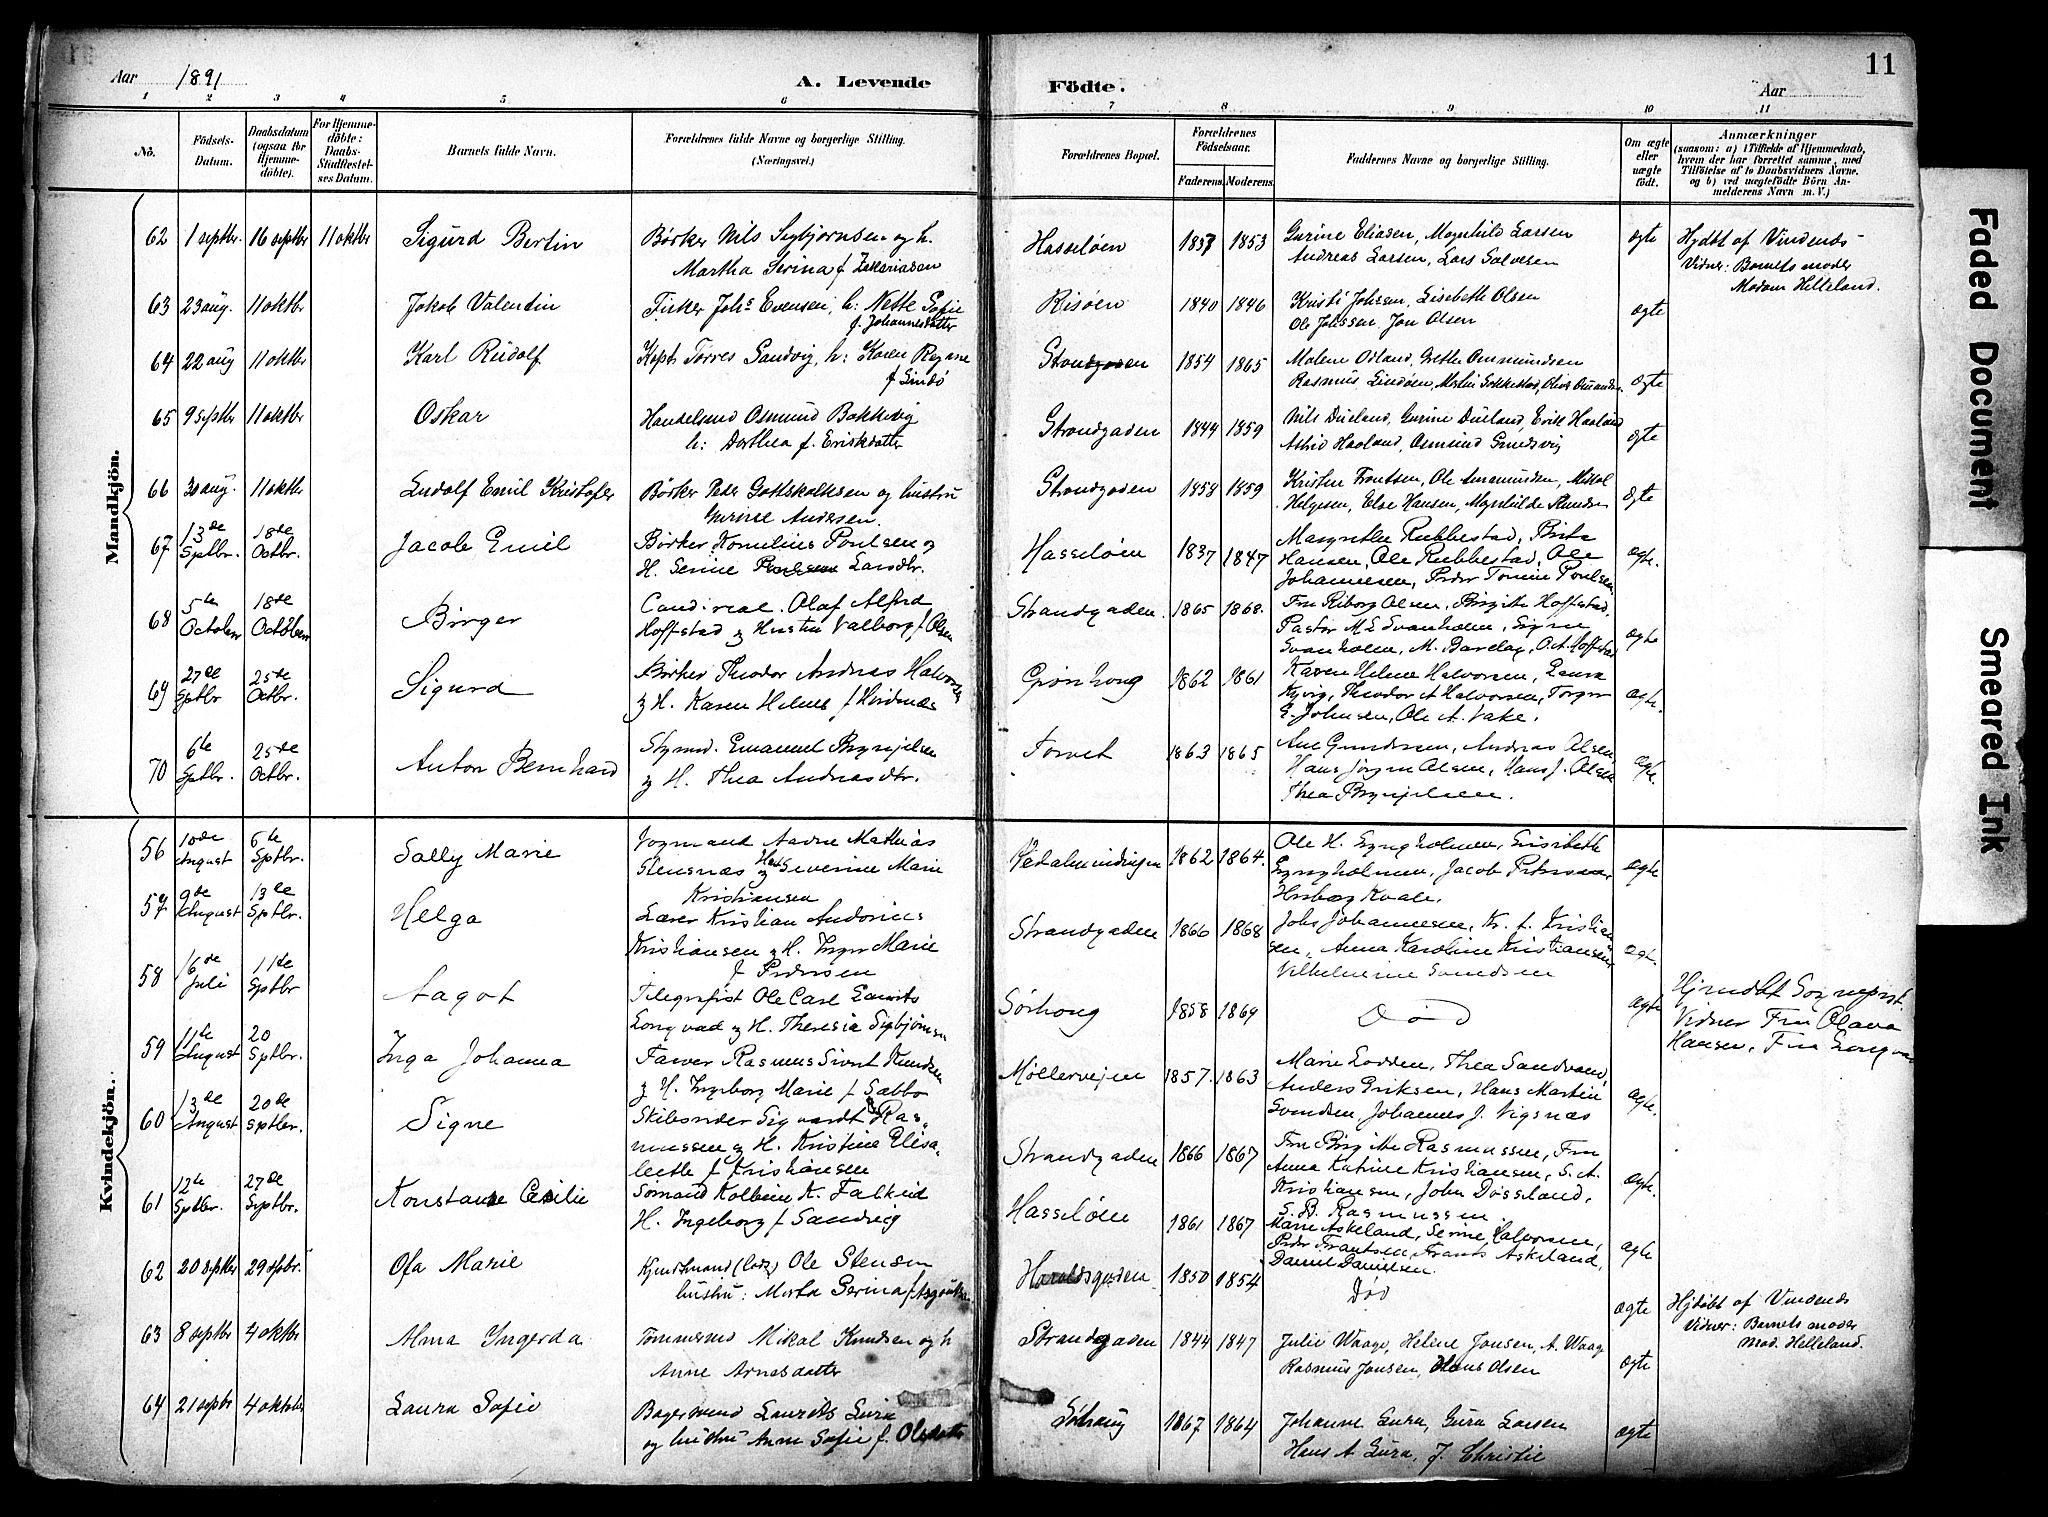 11
Aar 1891
A. Levende
Födte.
Aar
1 2 3 4 5 6 7 8 9 10 11
No.
Födsels-Datum.
Daabsdatum (ogsaa for Hjemmedöbte).
For Hjemmedöbte: Daabs-Stadfæstelses Datum.
Barnets fulde Navn.
Forældrenes fulde Navne og borgerlige Stilling. (Næringsvei.)
Forældrenes Bopæl.
Forældrenes Födselsaar.
Faderens. Moderens.
Faddernes Navne og borgerlige Stilling.
Om ægte eller uægte født.
Anmærkninger
(saasom: a) i Tilfælde af Hjemmedaab, hvem der har forrettet samme, med Tilföielse af to Daabsvidners Navne, og b) ved uægtefödte Börn Anmelderens Navn m. V.)
Mandkjön.
62 1 septbr. 16 septbr 11 oktbr Sigurd Bertin Børker Nils Sigbjørnsen og h. Hasseløen 1857 1853 Gurine Eliasen, Magnhild Larsen ægte Hjdøbt af Vindenæs
Martha Serina f Zakariasen Andreas Larsen, Lars Salvesen Vidner: Barnets moder
Madam Helleland.
63 23 aug. 11 oktbr Jakob Valentin Fisker Johs Evensen, h: Nette Sofie Risøen 1840 1846 Lisebeth Olsen ægte
f. Johannesdatter Jon Olsen
64 22 aug 11 oktbr Karl Rudolf Kapt. Tørres Sandvig, h: Karen Regine Strandgaden 1854 1865 Malene Grethe Ommundsen ægte
f Lindø Rasmus Lindøen,
65 9 septbr 11 oktbr Oskar Handelsmd Osmund Bokkevig Strandgaden 1844 1859 Nils Dueland, Gurine Dueland, Erik Haaland ægte
h: Dorthea f. Eriksdatter Astrid Haaland, Osmund
66 30 aug. 11 oktbr Ludolf Emil Kristofer Børker Peder Gottskalksen og hustru Strandgaden 1858 1859 Kristen Frantsen, Ole Amamundsen, Mikal ægte
Gurine Andersen. Helgesen, Else Hansen, Magnhilde Knudsen
67 13de Septbr. 18de Octbr. Jacob Emil Børker Kornelius Poulsen og Hasseløen 1837 1847 Margrethe Rubbestad, Brita ægte.
H. Serine Larsdtr. Hansen, Ole Rubbestad, Ole
Johannesen, Peder Tomine Poulsen
68 5te October 18de October Birger Cand. real. Olaf Alfred Strandgaden. 1865 1868. Fru Riborg Olsen, Birgitte Hoffstad, ægte
Hoffstad & Hustru Valborg f Olsen Pastor M E Svanholm, Signe
Svanholm, M. Barclay, O. A. Hoffstad
69 27de Septbr 25de Octbr. Sigurd Børker Theodor Andreas Halvorsen Grønhoug 1862 1861 Karen Helene Halvorsen, Laura ægte.
& H. Karen Helene f Hindenæs Kyvig, Theodor A Halvorsen, Torger
E. Johnsen, Ole A. Vake.
70 6te Septbr. 25de Octbr. Anton Bernhard Styrmd. Emanuel Brynjelsen Torvet 1863 1865 Ane Gundersen, Andreas Olsen, ægte.
& H. Thea Andreasdtr. Hans Jørgen Olsen, Hans J. Olsen
Thea Brynjelsen.
Kvindekjön.
56 10de August 6te Septbr. Sally Marie Vognmand Aadne Mathias 1862 1864. Ole H. Lyngholmen, Lisibeth ægte
Stensnæs & Hust. Severine Marie Lyngholmen, Jacob Petersen
Kristiansen Herborg Kvale.
57 9de August 13de Septbr. Helga Lærer Kristian Andorius Strandgaden 1866 1868 Johs Johannesen, Kr. A. Kristian ægte.
Kristiansen & H. Inger Marie sen, Anna Karoline Kristiansen
f Pedersen Vilhelmine Svendsen
58 16de Juli 11te Septbr Aagot Telegrafist Ole Carl Laurits Sørhoug 1858 1869 Død ægte Hjemdøbt Sogneprst.
Longvad & H. Theresia Sigbjørnsen Vidner Fru Olava
Hansen, Fru Longvad
59 11te August 20 Septbr. Inga Johanna Farver Rasmus Sivert Knudsen Møllervejen 1857. 1863 Marie Lodden, Thea Sandvand, ægte.
& H. Ingeborg Marie f Sabbø Anders Eriksen, Hans Martin
Svendsen, Johannes J. Vigsnæs
60 13de August 20de Septbr. Signe Skibsreder Sigvardt B Ras- Strandgaden 1866 1867 Fru Birgitte Rasmussen, Fru ægte.
mussen & H. Kristine Elisa- Anna Katrine Kristiansen, S. A.
beth f Kristiansen Kristiansen, John Døsseland,
S. B. Rasmussen
61 12te Septbr. 27de Septbr. Konstanse Cesilie Sømand Kolbein K. Falkeid Hasseløen 1861 1867 Marie Askeland, Serine Halvorsen, ægte
H. Ingeborg f Sandvig Peder Frantsen, Frants Askeland,
Daniel Danielsen.
62 20 septbr 29 septbr. Ofa Marie Kjendtmand (lods) Ole Stensen Haraldsgaden 1850 1854 Død ægte Hjdøbt af Vindenæs
hustru: Marta Serina f Vidner: Barnets moder
Mad. Helleland.
63 8 septbr 4 oktbr Alma Ingerda Tømmermd Mikal Knudsen og h Strandgaden 1844 1847 Julie Waage, Helene Jansen, A. Waage ægte
Anne Arnesdatter Rasmus Jansen, Hans Olsen
64 21 septbr 4 oktober Laura Sofie Bagersvend Laurits Lura Sørhaug 1867 1864 Johanne Lura, Gura Larsen ægte
og hustru Anne Sofie f. Olsdatter Hans A Lura, J. Christie
Faded Document
Smeared Ink